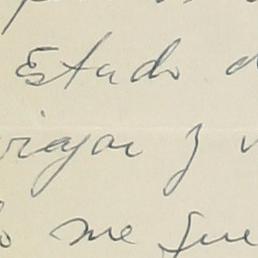 Estado d
viajar y v
lo me que